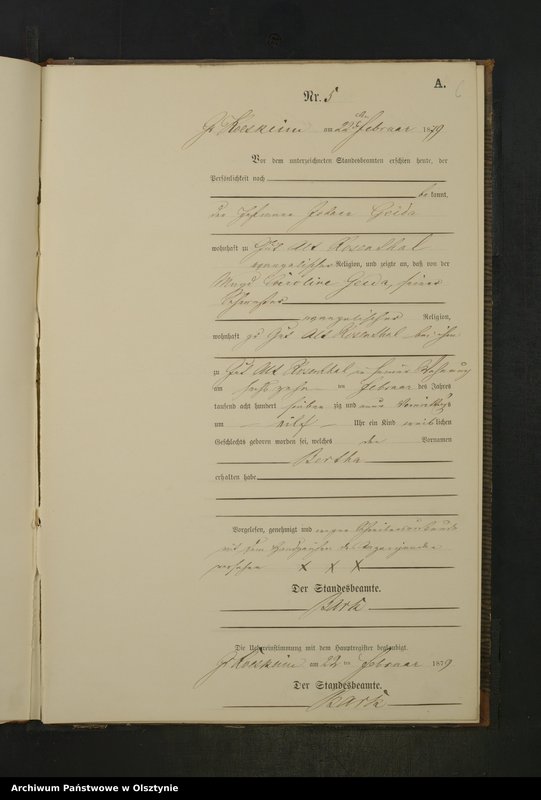 A.
Nr. 5
am 22ten Februar 1879
Vor dem unterzeichneten Standesbeamten erschien heute, der
Persönlichkeit nach
bekannt,
der Johann Geida
wohnhaft zu Gut Alt Rosenthal
evangelischer Religion, und zeigte an, daß von der
Magd Caroline Geida, seiner
Schwester
evangelischer Religion,
wohnhaft zu Gut Alt Rosenthal bei ihm
zu Gut Alt Rosenthal in seiner Wohnung
am sechszehn ten Februar des Jahres
tausend acht hundert sieben zig und neun Vormittags
um elf Uhr ein Kind weiblichen
Geschlechts geboren worden sei, welches den Vornamen
Bertha
erhalten habe
Vorgelesen, genehmigt und wegen
mit dem Handzeichen des Anzeigenden
versehen X X X
Der Standesbeamte.
Die Uebereinstimmung mit dem Hauptregister beglaubigt.
am 22 ten Februar 1879
Der Standesbeamte.
Archiwum Państwowe w Olsztynie